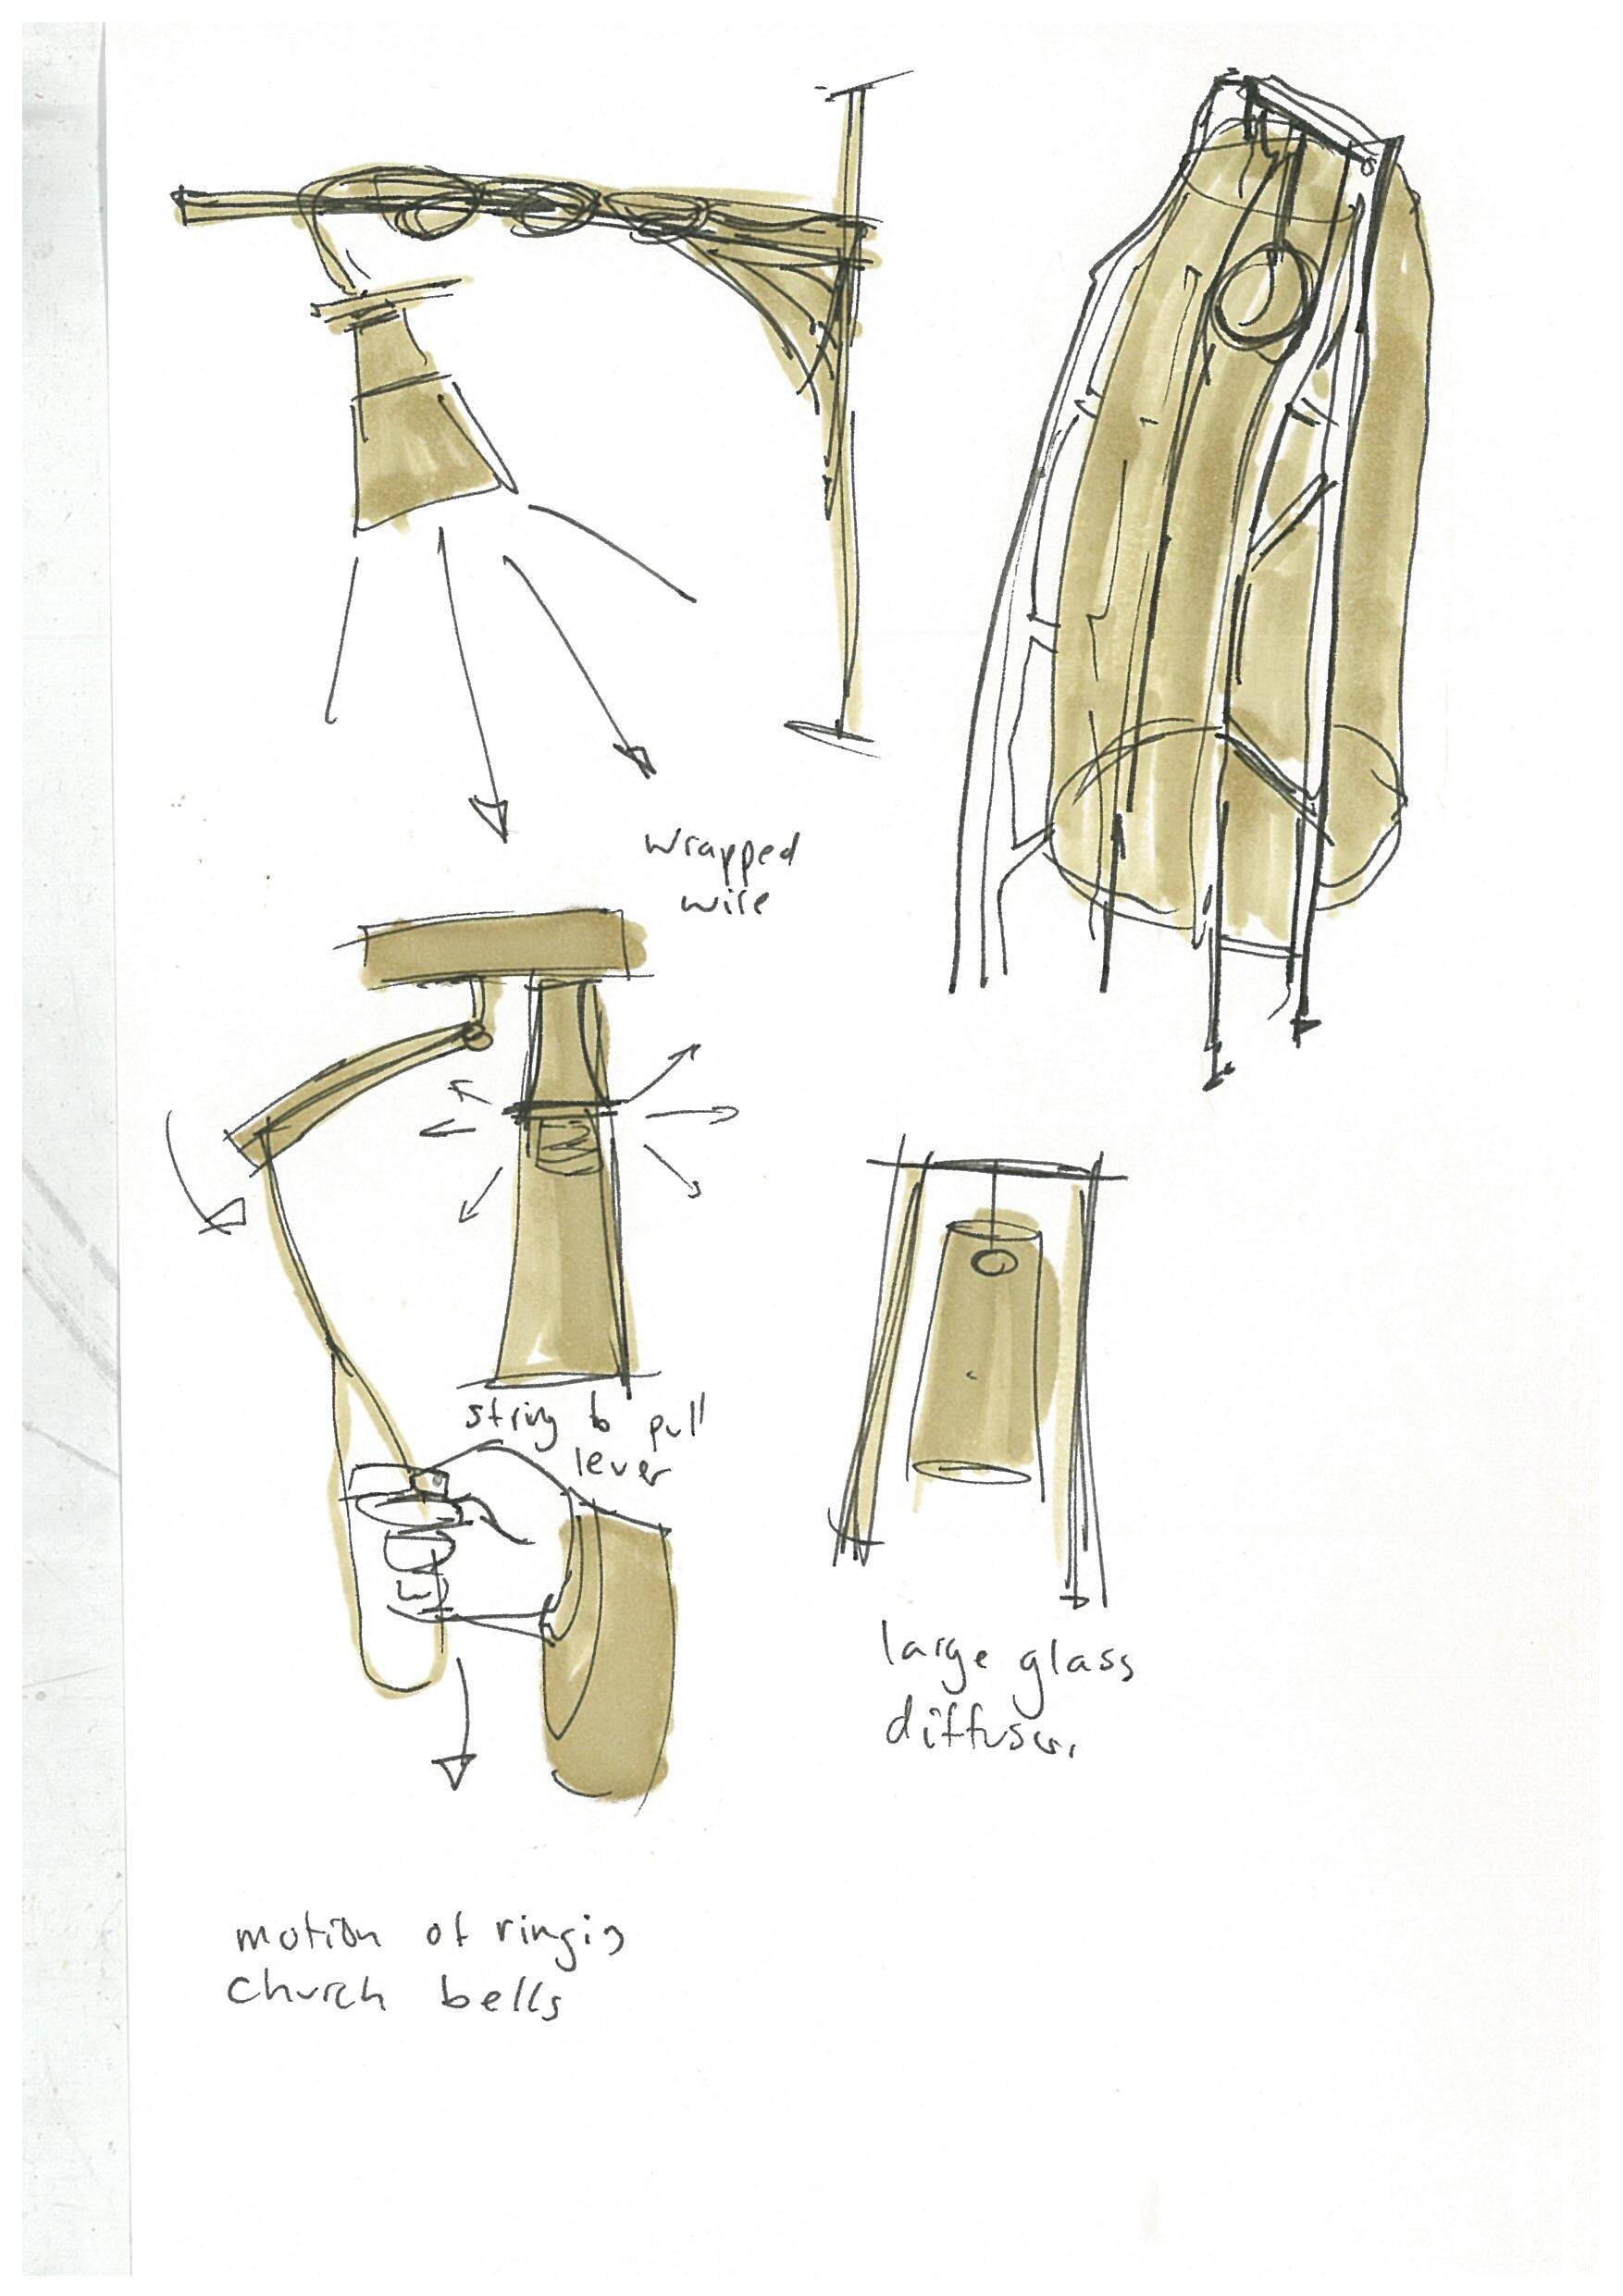 wrapped
wire
string to pull
lever
large glass
diffuser.
motion of ringing
church bells